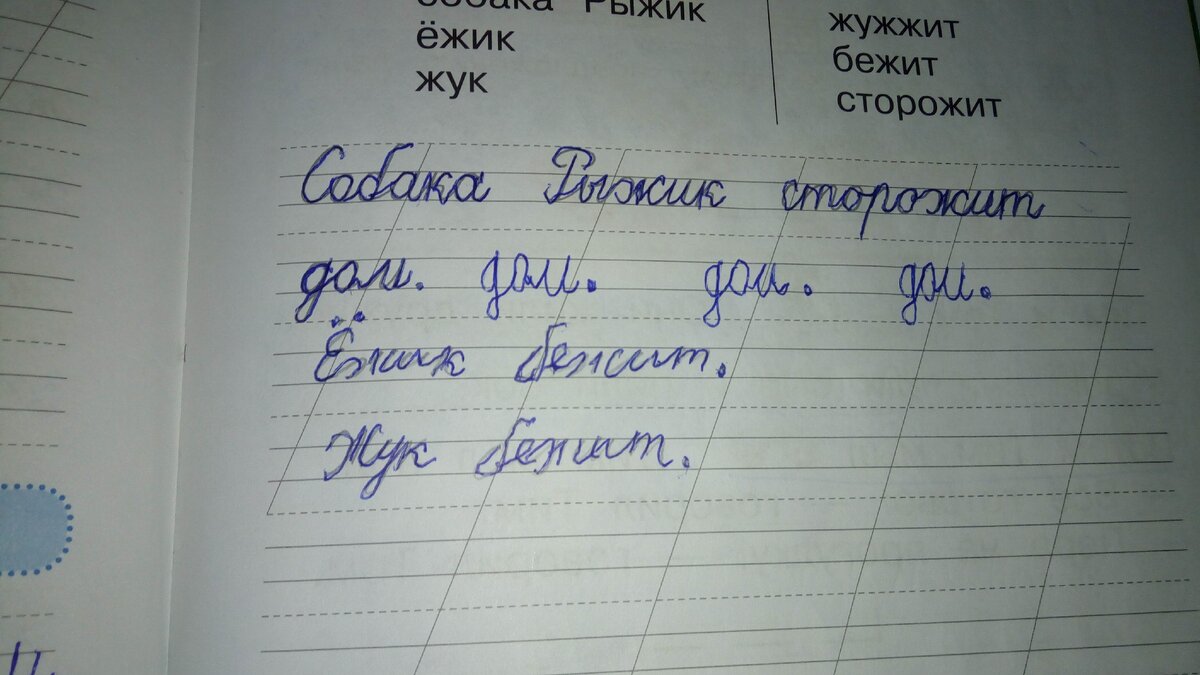 собака Рыжик
ёжик
жук
жужжит
бежит
сторожит
Собака Рыжик сторожит
дом. дом. дом. дом.
Ёжик бежит.
Жук бежит.